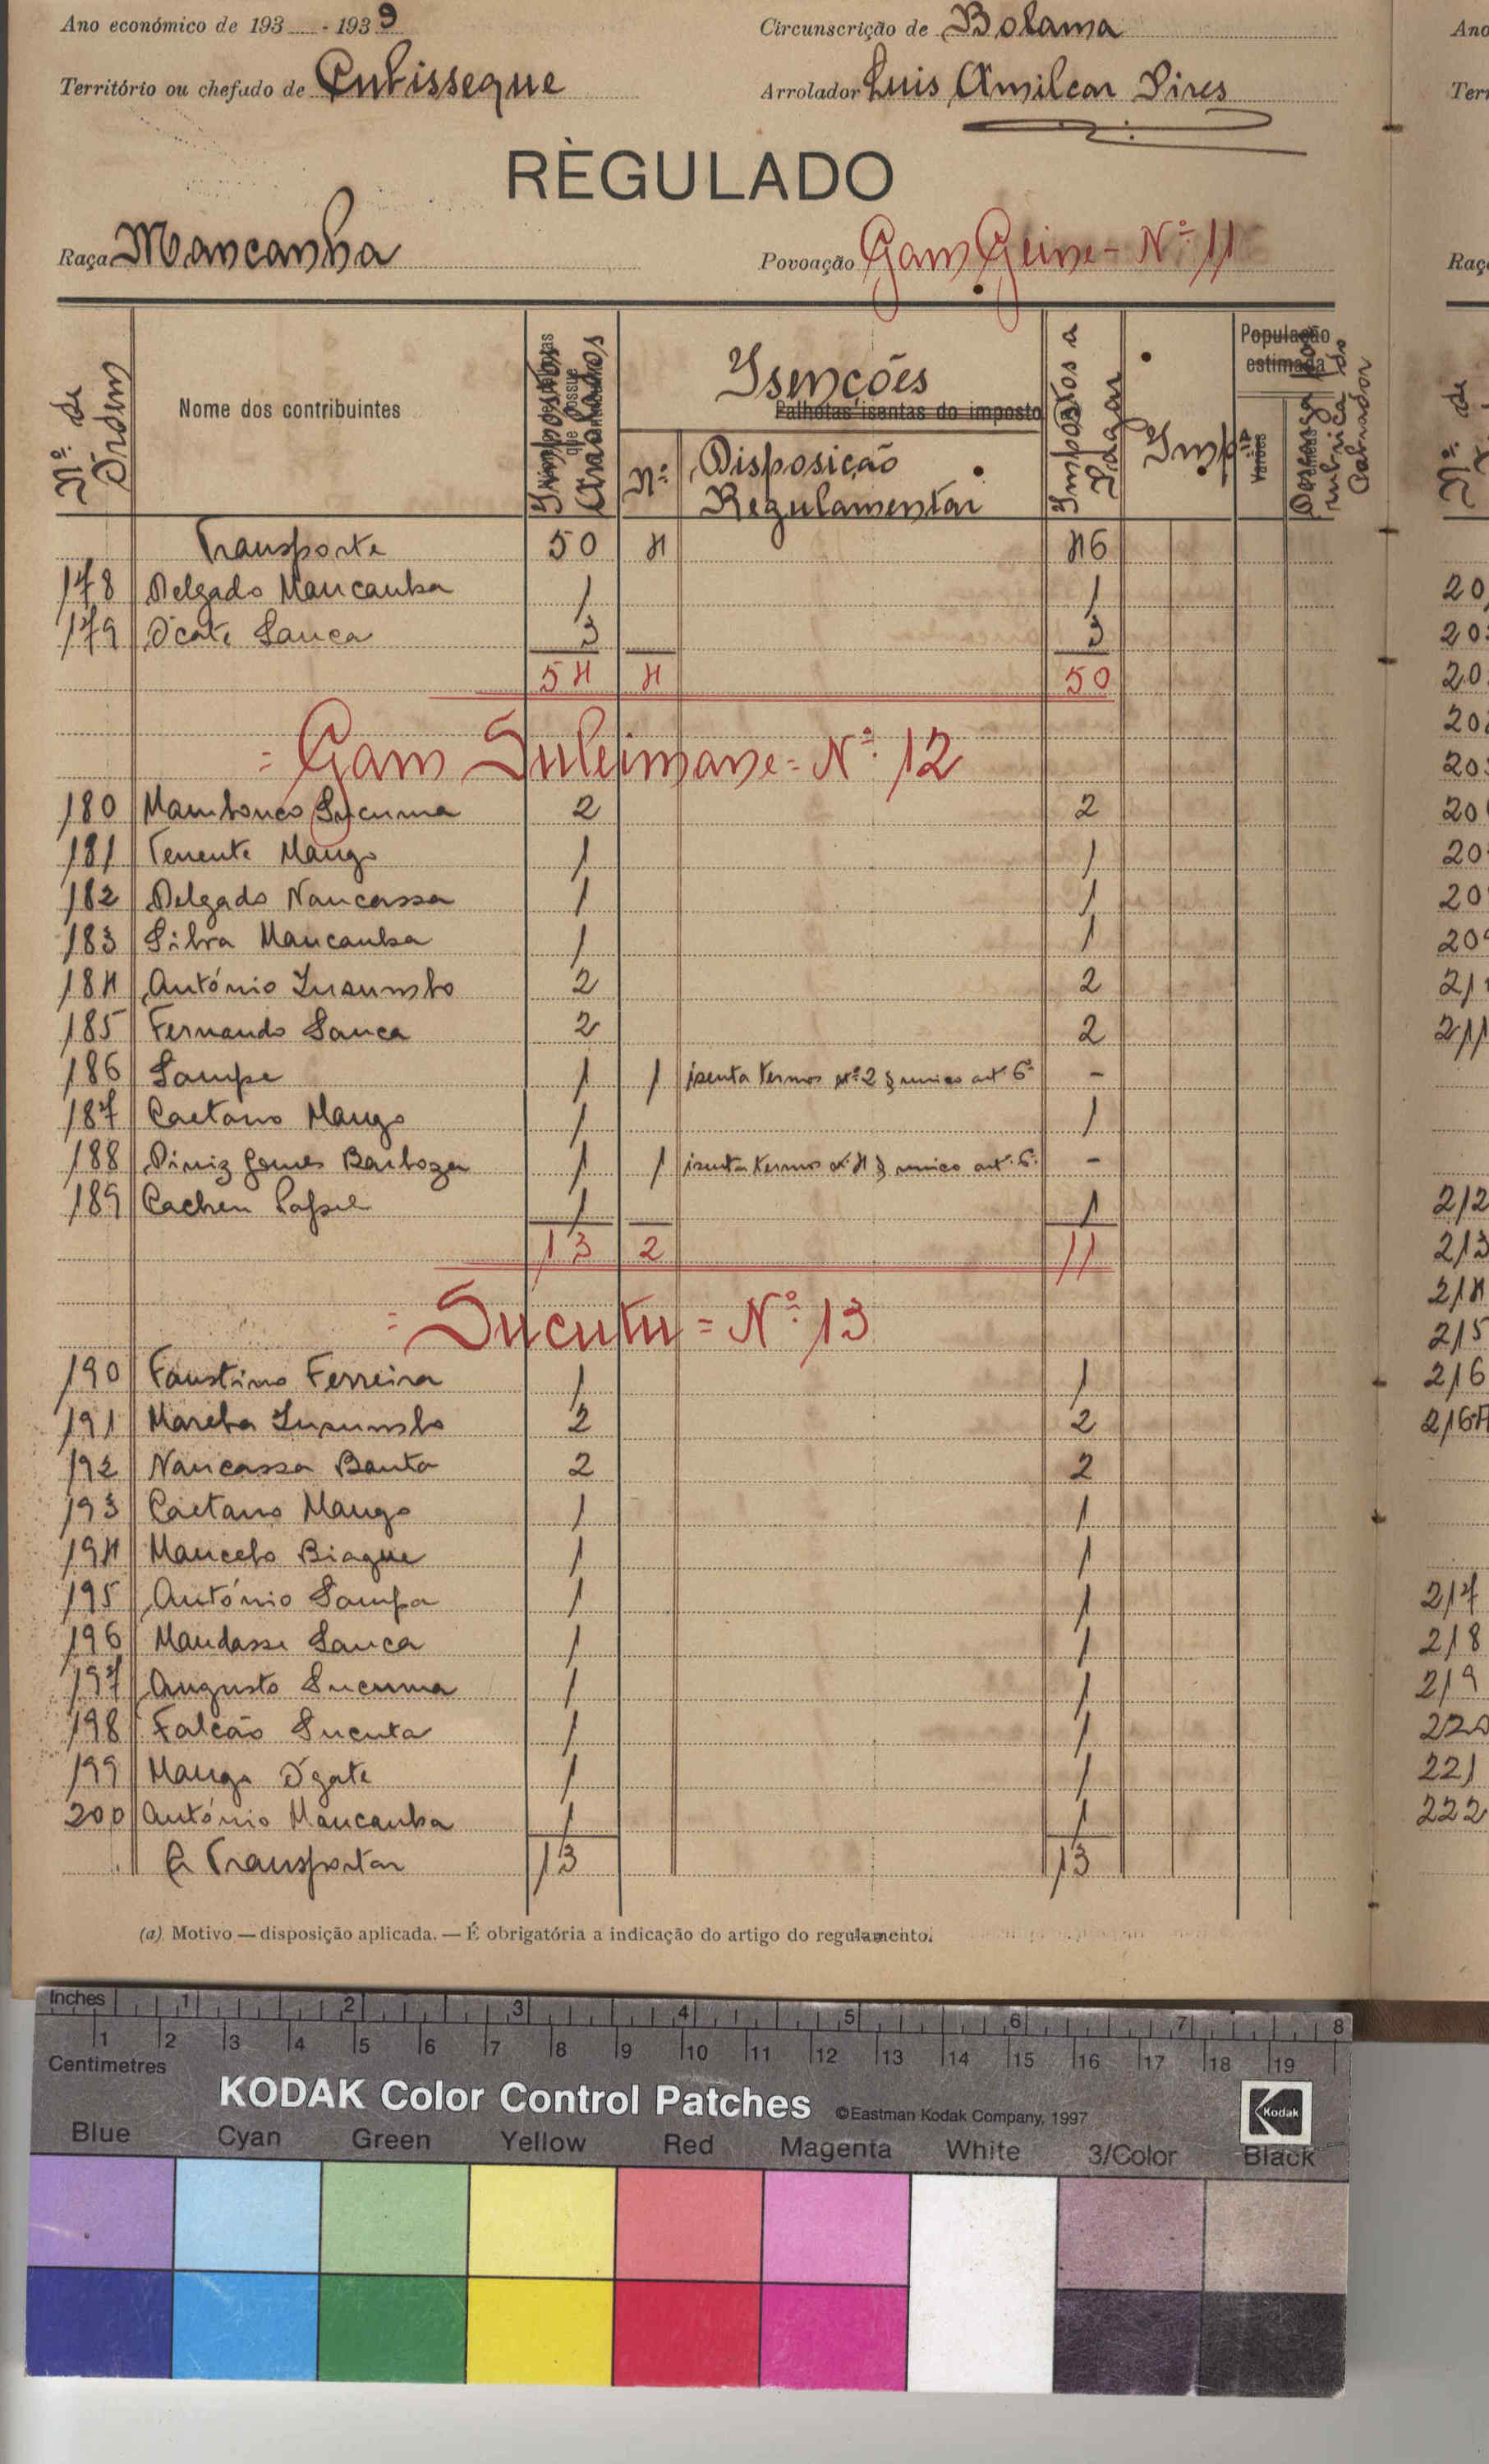 Ano económico de 193 - 1939 Circunscrição de Bolama Ano
Território ou chefado de Arrolador Luis Amilcar Pires
RÈGULADO
Raça Mancanha Povoação Gam Geine - Nº 11
Nº de Ordem Nome dos contribuintes Impostos Arrolados Isenções Impostos a Pagar Imp População estimada
Palhotas isentas do imposto
Nº Disposição Regulamentar Varões rubrica do Cobrador
Transporte 50 4 46
178 Delgado Mancanha 1 1
179 D'cate Sanca 3 3
54 4 50
= Gam Suleimane = Nº 12
180 Mambonco Sucuma 2 2
181 Tenente Mango 1 1
182 Delgado Nancassa 1 1
183 Silva Mancanha 1 1
184 António Insumbo 2 2
185 Fernando Sanca 2 2
186 Sampe 1 1 isenta termos nº 2 § unico art 6º -
187 Caetano Mango 1 1
188 Diniz Gomes Barboza 1 1 isenta termos nº 4 § unico art. 6º -
189 Cacheu 1 1
13 2 11
= Sucutu = Nº 13
190 Faustino Ferreira 1 1
191 Insumbo 2 2
192 Nancassa Banta 2 2
193 Caetano Mango 1 1
194 Mancebo Biague 1 1
195 António Sampa 1 1
196 Mandasse Sanca 1 1
197 Augusto Sucuma 1 1
198 Falcão Sucuta 1 1
199 Mango D'gate 1 1
200 António Mancanha 1 1
A Transportar 13 13
(a) Motivo — disposição aplicada. — É obrigatória a indicação do artigo do regulamento.
212
213
214
215
216
216A
217
218
219
220
221
222
Inches 1 2 3 4 5 6 7 8
Centimetres 1 2 3 4 5 6 7 8 9 10 11 12 13 14 15 16 17 18 19
KODAK Color Control Patches ©Eastman Kodak Company, 1997 Kodak
Blue Cyan Green Yellow Red Magenta White 3/Color Black